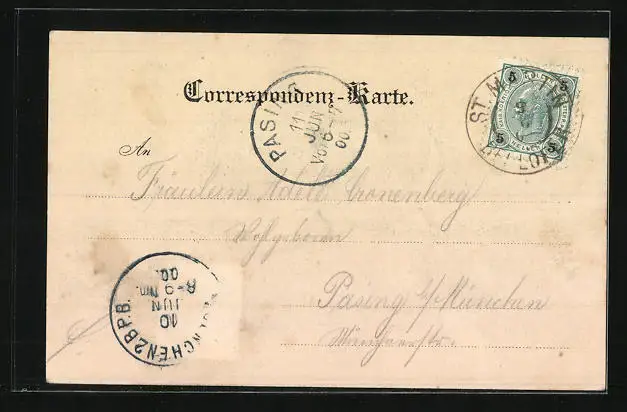 Correspondenz-Karte.
PASING
11
JUN
Vor. 6-7
00.
5 5
5 5
ST. MARTIN
An
Fräulein Adele Cronenberg
Wohlgeboren
Pasing b/München
MUENCHEN 2 B.P.B.
10
JUN
8-9 Nm.
00.